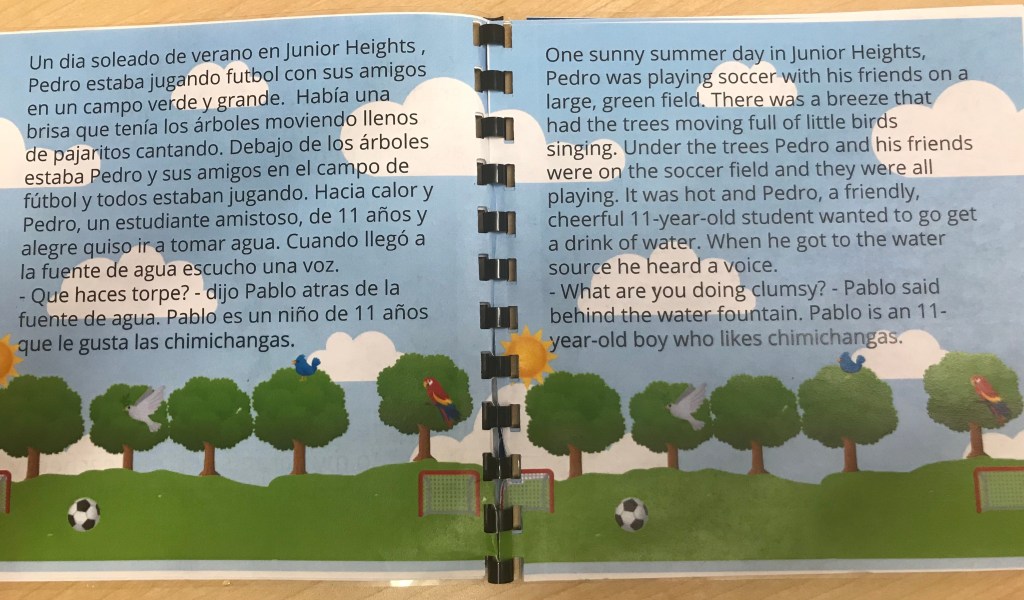 Un dia soleado de verano en Junior Heights ,
Pedro estaba jugando futbol con sus amigos
en un campo verde y grande. Había una
brisa que tenía los árboles moviendo llenos
de pajaritos cantando. Debajo de los árboles
estaba Pedro y sus amigos en el campo de
fútbol y todos estaban jugando. Hacia calor y
Pedro, un estudiante amistoso, de 11 años y
alegre quiso ir a tomar agua. Cuando llegó a
la fuente de agua escucho una voz.
- Que haces torpe? - dijo Pablo atras de la
fuente de agua. Pablo es un niño de 11 años
que le gusta las chimichangas.
One sunny summer day in Junior Heights,
Pedro was playing soccer with his friends on a
large, green field. There was a breeze that
had the trees moving full of little birds
singing. Under the trees Pedro and his friends
were on the soccer field and they were all
playing. It was hot and Pedro, a friendly,
cheerful 11-year-old student wanted to go get
a drink of water. When he got to the water
source he heard a voice.
- What are you doing clumsy? - Pablo said
behind the water fountain. Pablo is an 11-
year-old boy who likes chimichangas.